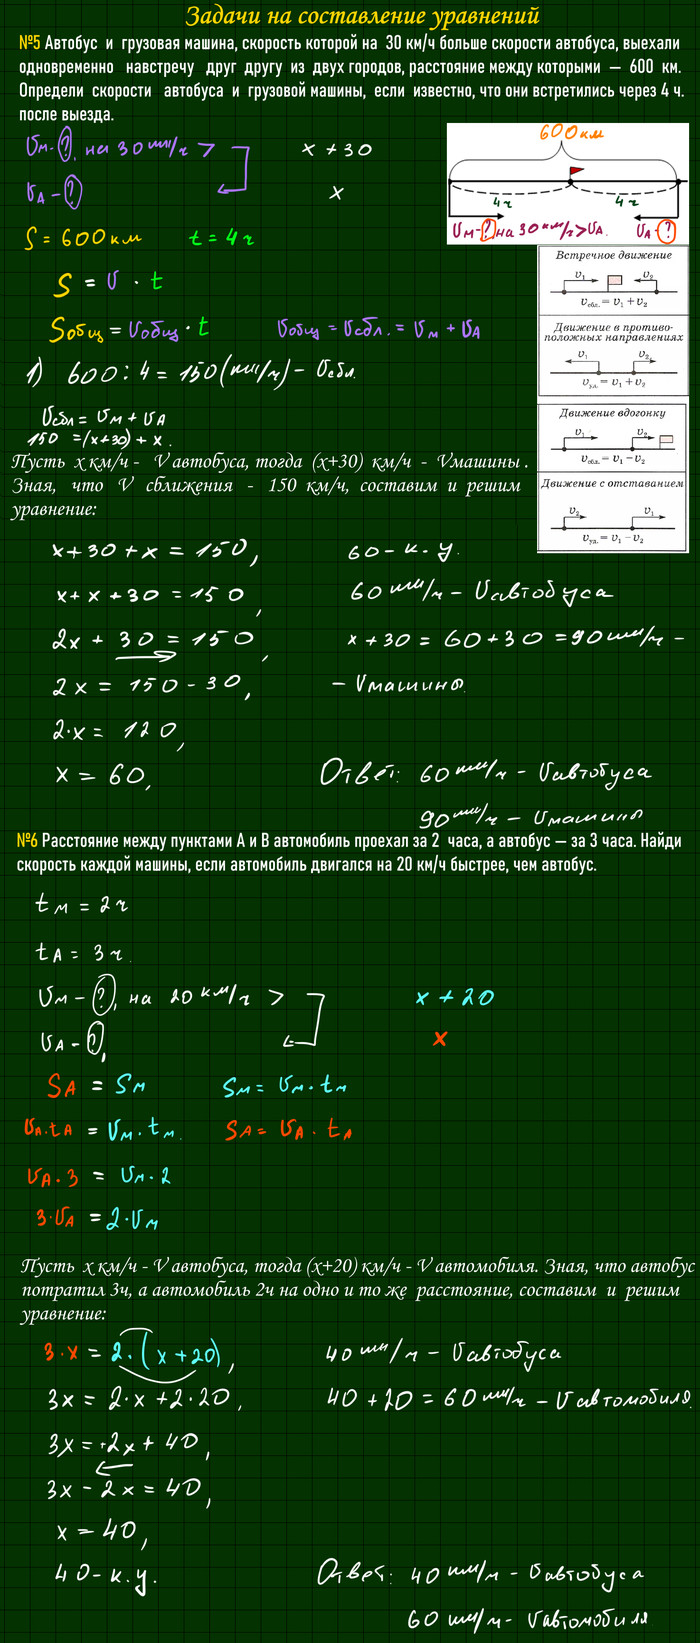 Задачи на составление уравнений
№5 Автобус и грузовая машина, скорость которой на 30 км/ч больше скорости автобуса, выехали
одновременно навстречу друг другу из двух городов, расстояние между которыми — 600 км.
Определи скорости автобуса и грузовой машины, если известно, что они встретились через 4 ч.
после выезда.
Vм - ?, на 30 км/ч > x + 30
VА - ? x
S = 600 км t = 4 ч
S = V · t
Sобщ = Vобщ · t Vобщ = Vсбл. = Vм + VА
1) 600 : 4 = 150 (км/ч) - Vсбл.
Vсбл = Vм + VА
150 = (x+30) + x.
600 км
4 ч 4 ч
Vм - ? на 30 км/ч > VА. VА - ?
Встречное движение
υ₁ υ₂
υсбл. = υ₁ + υ₂
Движение в противо-
положных направлениях
υ₁ υ₂
υуд. = υ₁ + υ₂
Движение вдогонку
υ₁ υ₂
υсбл. = υ₁ − υ₂
Движение с отставанием
υ₂ υ₁
υуд. = υ₁ − υ₂
Пусть x км/ч - V автобуса, тогда (x+30) км/ч - Vмашины.
Зная, что V сближения - 150 км/ч, составим и решим
уравнение:
x + 30 + x = 150,
x + x + 30 = 150,
2x + 30 = 150,
2x = 150 - 30,
2·x = 120,
x = 60,
60 - к.у.
60 км/ч - Vавтобуса
x + 30 = 60 + 30 = 90 км/ч -
- Vмашины.
Ответ: 60 км/ч - Vавтобуса
90 км/ч - Vмашины
№6 Расстояние между пунктами А и В автомобиль проехал за 2 часа, а автобус — за 3 часа. Найди
скорость каждой машины, если автомобиль двигался на 20 км/ч быстрее, чем автобус.
tм = 2 ч
tА = 3 ч.
Vм - ?, на 20 км/ч > x + 20
VА - ?, x
SА = Sм Sм = Vм · tм
VА · tА = Vм · tм. SА = VА · tА
VА · 3 = Vм · 2
3 · VА = 2 · Vм
Пусть x км/ч - V автобуса, тогда (x+20) км/ч - V автомобиля. Зная, что автобус
потратил 3ч, а автомобиль 2ч на одно и то же расстояние, составим и решим
уравнение:
3·x = 2·(x+20),
3x = 2·x + 2·20,
3x = +2x + 40,
3x - 2x = 40,
x = 40,
40 - к.у.
40 км/ч - Vавтобуса
40 + 20 = 60 км/ч - Vавтомобиля.
Ответ: 40 км/ч - Vавтобуса
60 км/ч - Vавтомобиля